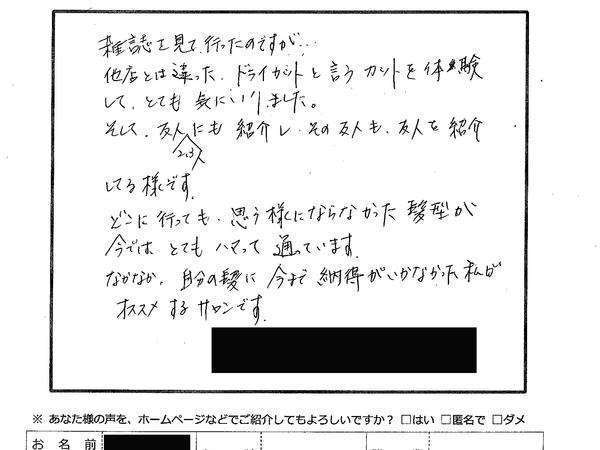 雑誌を見て行ったのですが…
他店とは違った、ドライカットと言うカットを体験
して、とても気にいりました。
そして、友人にも紹介し、その友人も、友人を紹介
2,3人
してる様です。
どこに行っても、思う様にならなかった髪型が
今では、とてもハマって通っています。
なかなか、自分の髪に今まで納得がいかなかった私が
オススメするサロンです。
※ あなた様の声を、ホームページなどでご紹介してもよろしいですか？ □はい □匿名で □ダメ
お 名 前